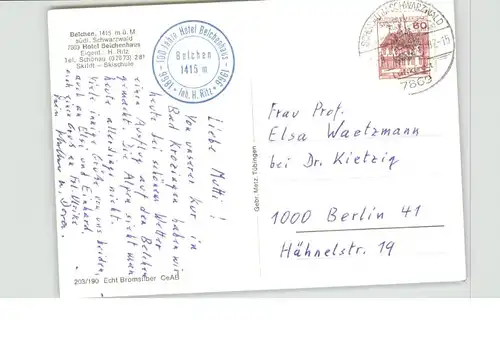 Belchen, 1415 m ü. M
südl. Schwarzwald
7869 Hotel Belchenhaus
Eigent. H. Ritz
Tel. Schönau (07673) 281
Skilift - Skischule
100 Jahre Hotel Belchenhaus
1866 1966
Belchen
1415 m
Inh. H. Ritz
Liebe Mutti!
Von unserer Kur in
Bad Krozingen haben wir
heute bei schönem Wetter
einen Ausflug auf den Belchen
gemacht. Die Alpen sieht man
heute allerdings nicht.
Viele innige Grüße von uns beiden,
auch an Elfi und Einhard
203/190 Echt Bromsilber CeAB
Gebr. Metz, Tübingen
60
7869
Frau Prof.
Elsa Waetzmann
bei Dr. Kietzig
1000 Berlin 41
Hähnelstr. 19